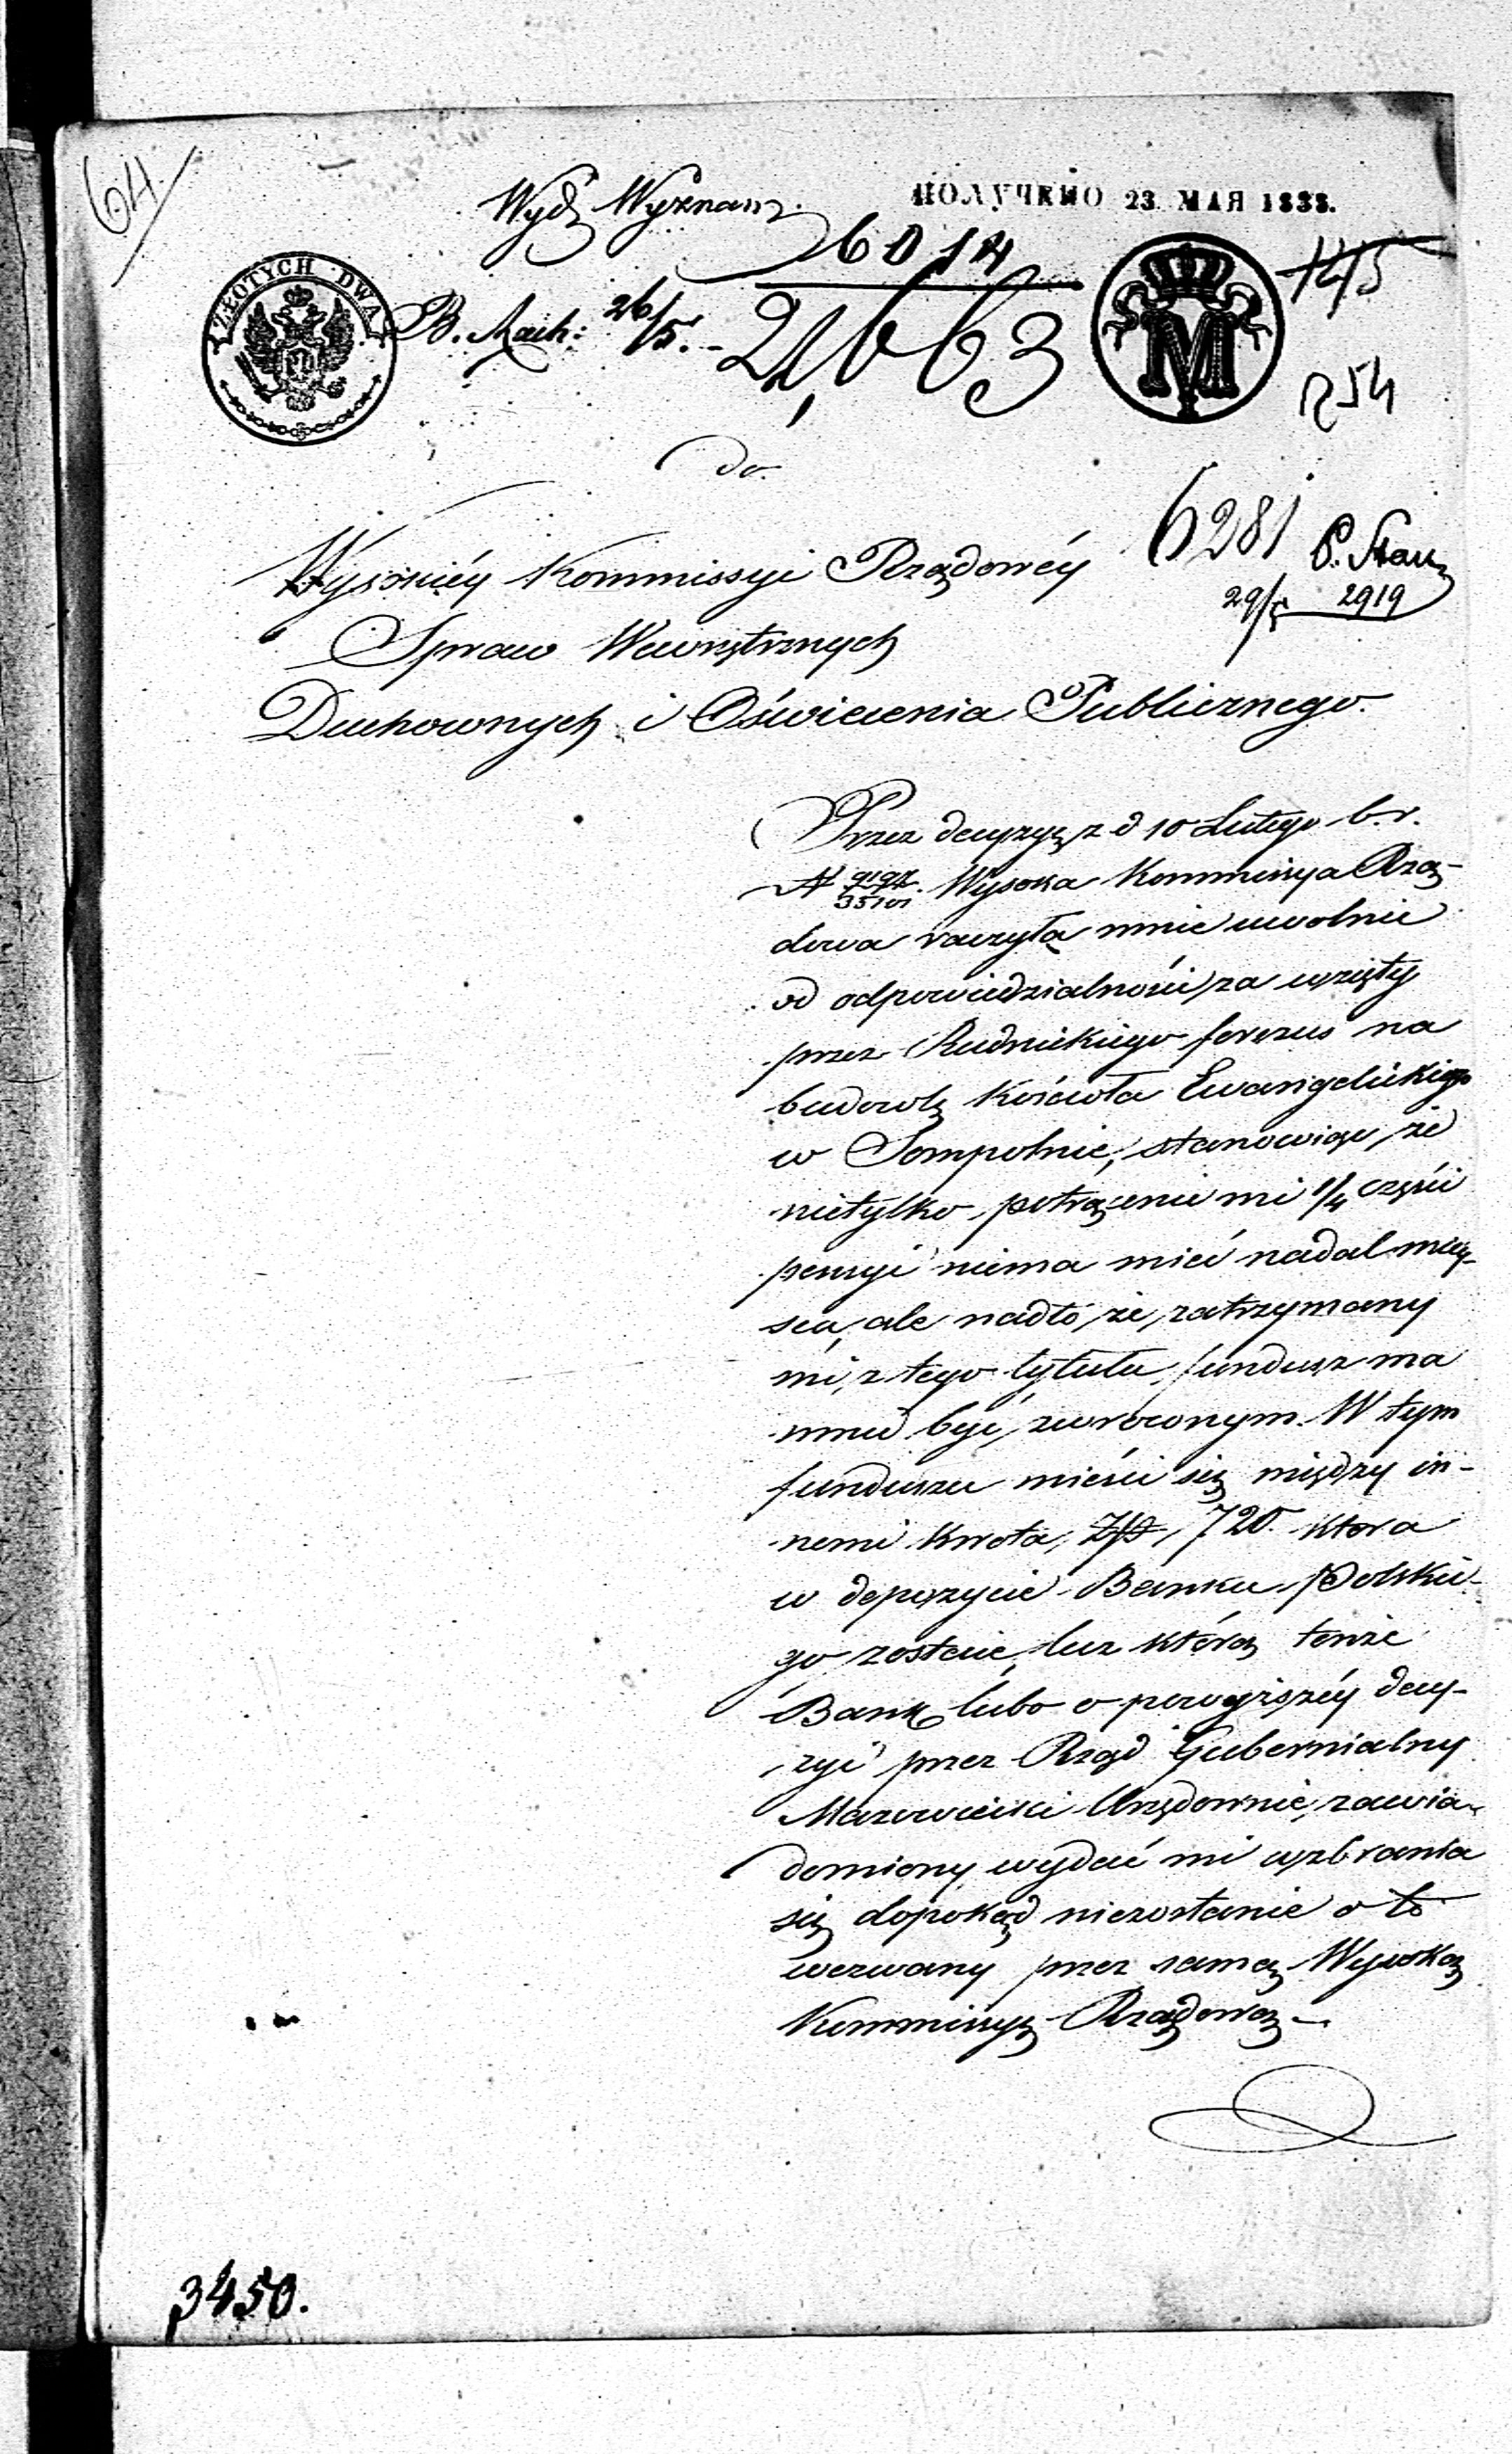 64
Wydz Wyznań.
ПОЛУЧЕНО 23 МАЯ 1838.
6014
145
ZŁOTYCH DWA
B. Rach: 26/5. - 21,663
M
254
do
6281 P. Stan
29/5 2919
Wysokiéy Kommissyi Rządowéy
Spraw Wewnętrznych
Duchownych i Oświecenia Publicznego.
Przez decyzyę z d 10 Lutego b.r.
N Wysoka Kommissya Rzą-
dowa raczyła mnie uwolnić
od odpowiedzialności za wzięty
przez Rudnickiego forszus na
budowlę Kościoła Ewangelickiego
w Sompolnie, stanowiąc, że
nietylko potrącenie mi 1/4 części
pensyi niema mieć nadal miey-
sca, ale nadto, że zatrzymany
mi z tego tytułu fundusz ma
mnie być zwroconym. W tym
funduszu mieści się między in-
nemi kwota, Złp, 720. ktora
w depozycie Banku Polskie-
go zostaie, lecz którą tenże
Bank lubo o powyższéy decy-
zyi przez Rząd Gubernialny
Mazowiecki Urzędownie zawia-
domiony wydać mi wzbrania
się dopokąd niezostanie o to
wezwany przez samą Wysoką
Kommissyę Rządową –
3450.